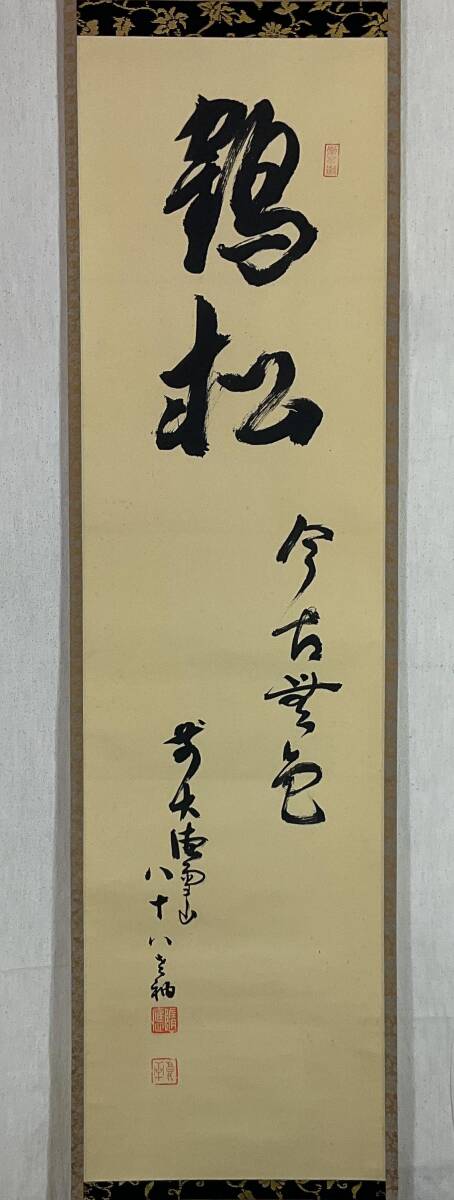 鶴松
今古無色
前大徳雪山
八十八老衲